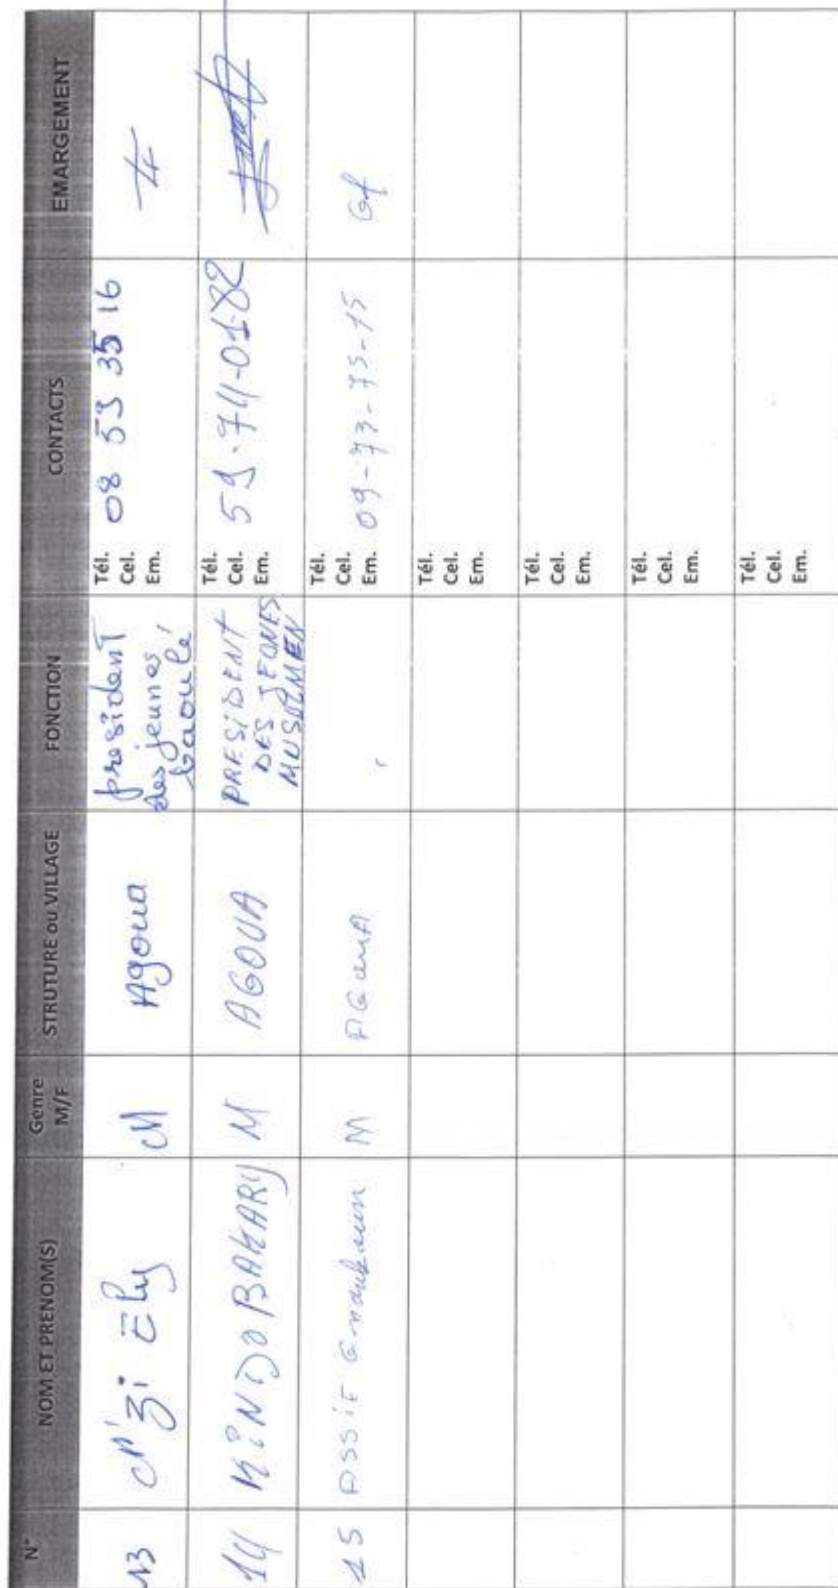 N° NOM ET PRENOM(S) Genre M/F STRUTURE ou VILLAGE FONCTION CONTACTS EMARGEMENT
13 N'Zi Ely M Agoua president des jeunes baoulé Tél. Cel. Em. 08 53 35 16
14 KINDO BAKARY M AGOUA PRESIDENT DES JEUNES MUSULMEN Tél. Cel. Em. 59-74-01-82
15 ASSIE M AGOUA Tél. Cel. Em. 09-73-75-15
Tél. Cel. Em.
Tél. Cel. Em.
Tél. Cel. Em.
Tél. Cel. Em.